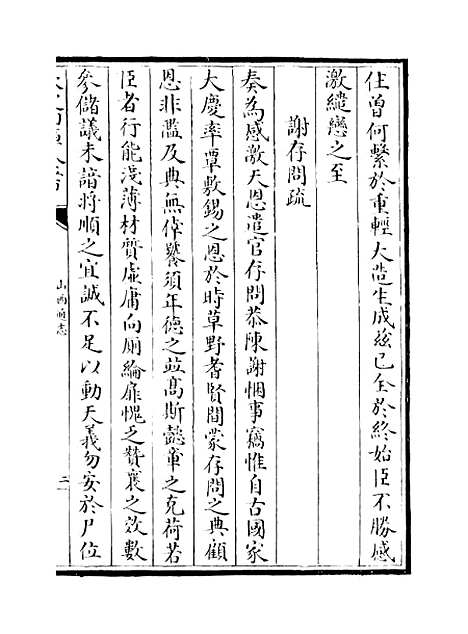 住曽何繫於重輕大造生成玆已全於終始臣不勝感
激繾戀之至
謝存問疏
奏為感激天恩遣官存問恭陳謝悃事竊惟自古國家
大慶率覃敷錫之恩於時草野耆賢間蒙存問之典顧
恩非濫及典無倖饕須年德之並髙斯懿章之克荷若
臣者行能淺薄材質虚庸向厠綸扉愧乏賛襄之效數
參儲議未諳將順之宜誠不足以動天義勿安於尸位
山西通志